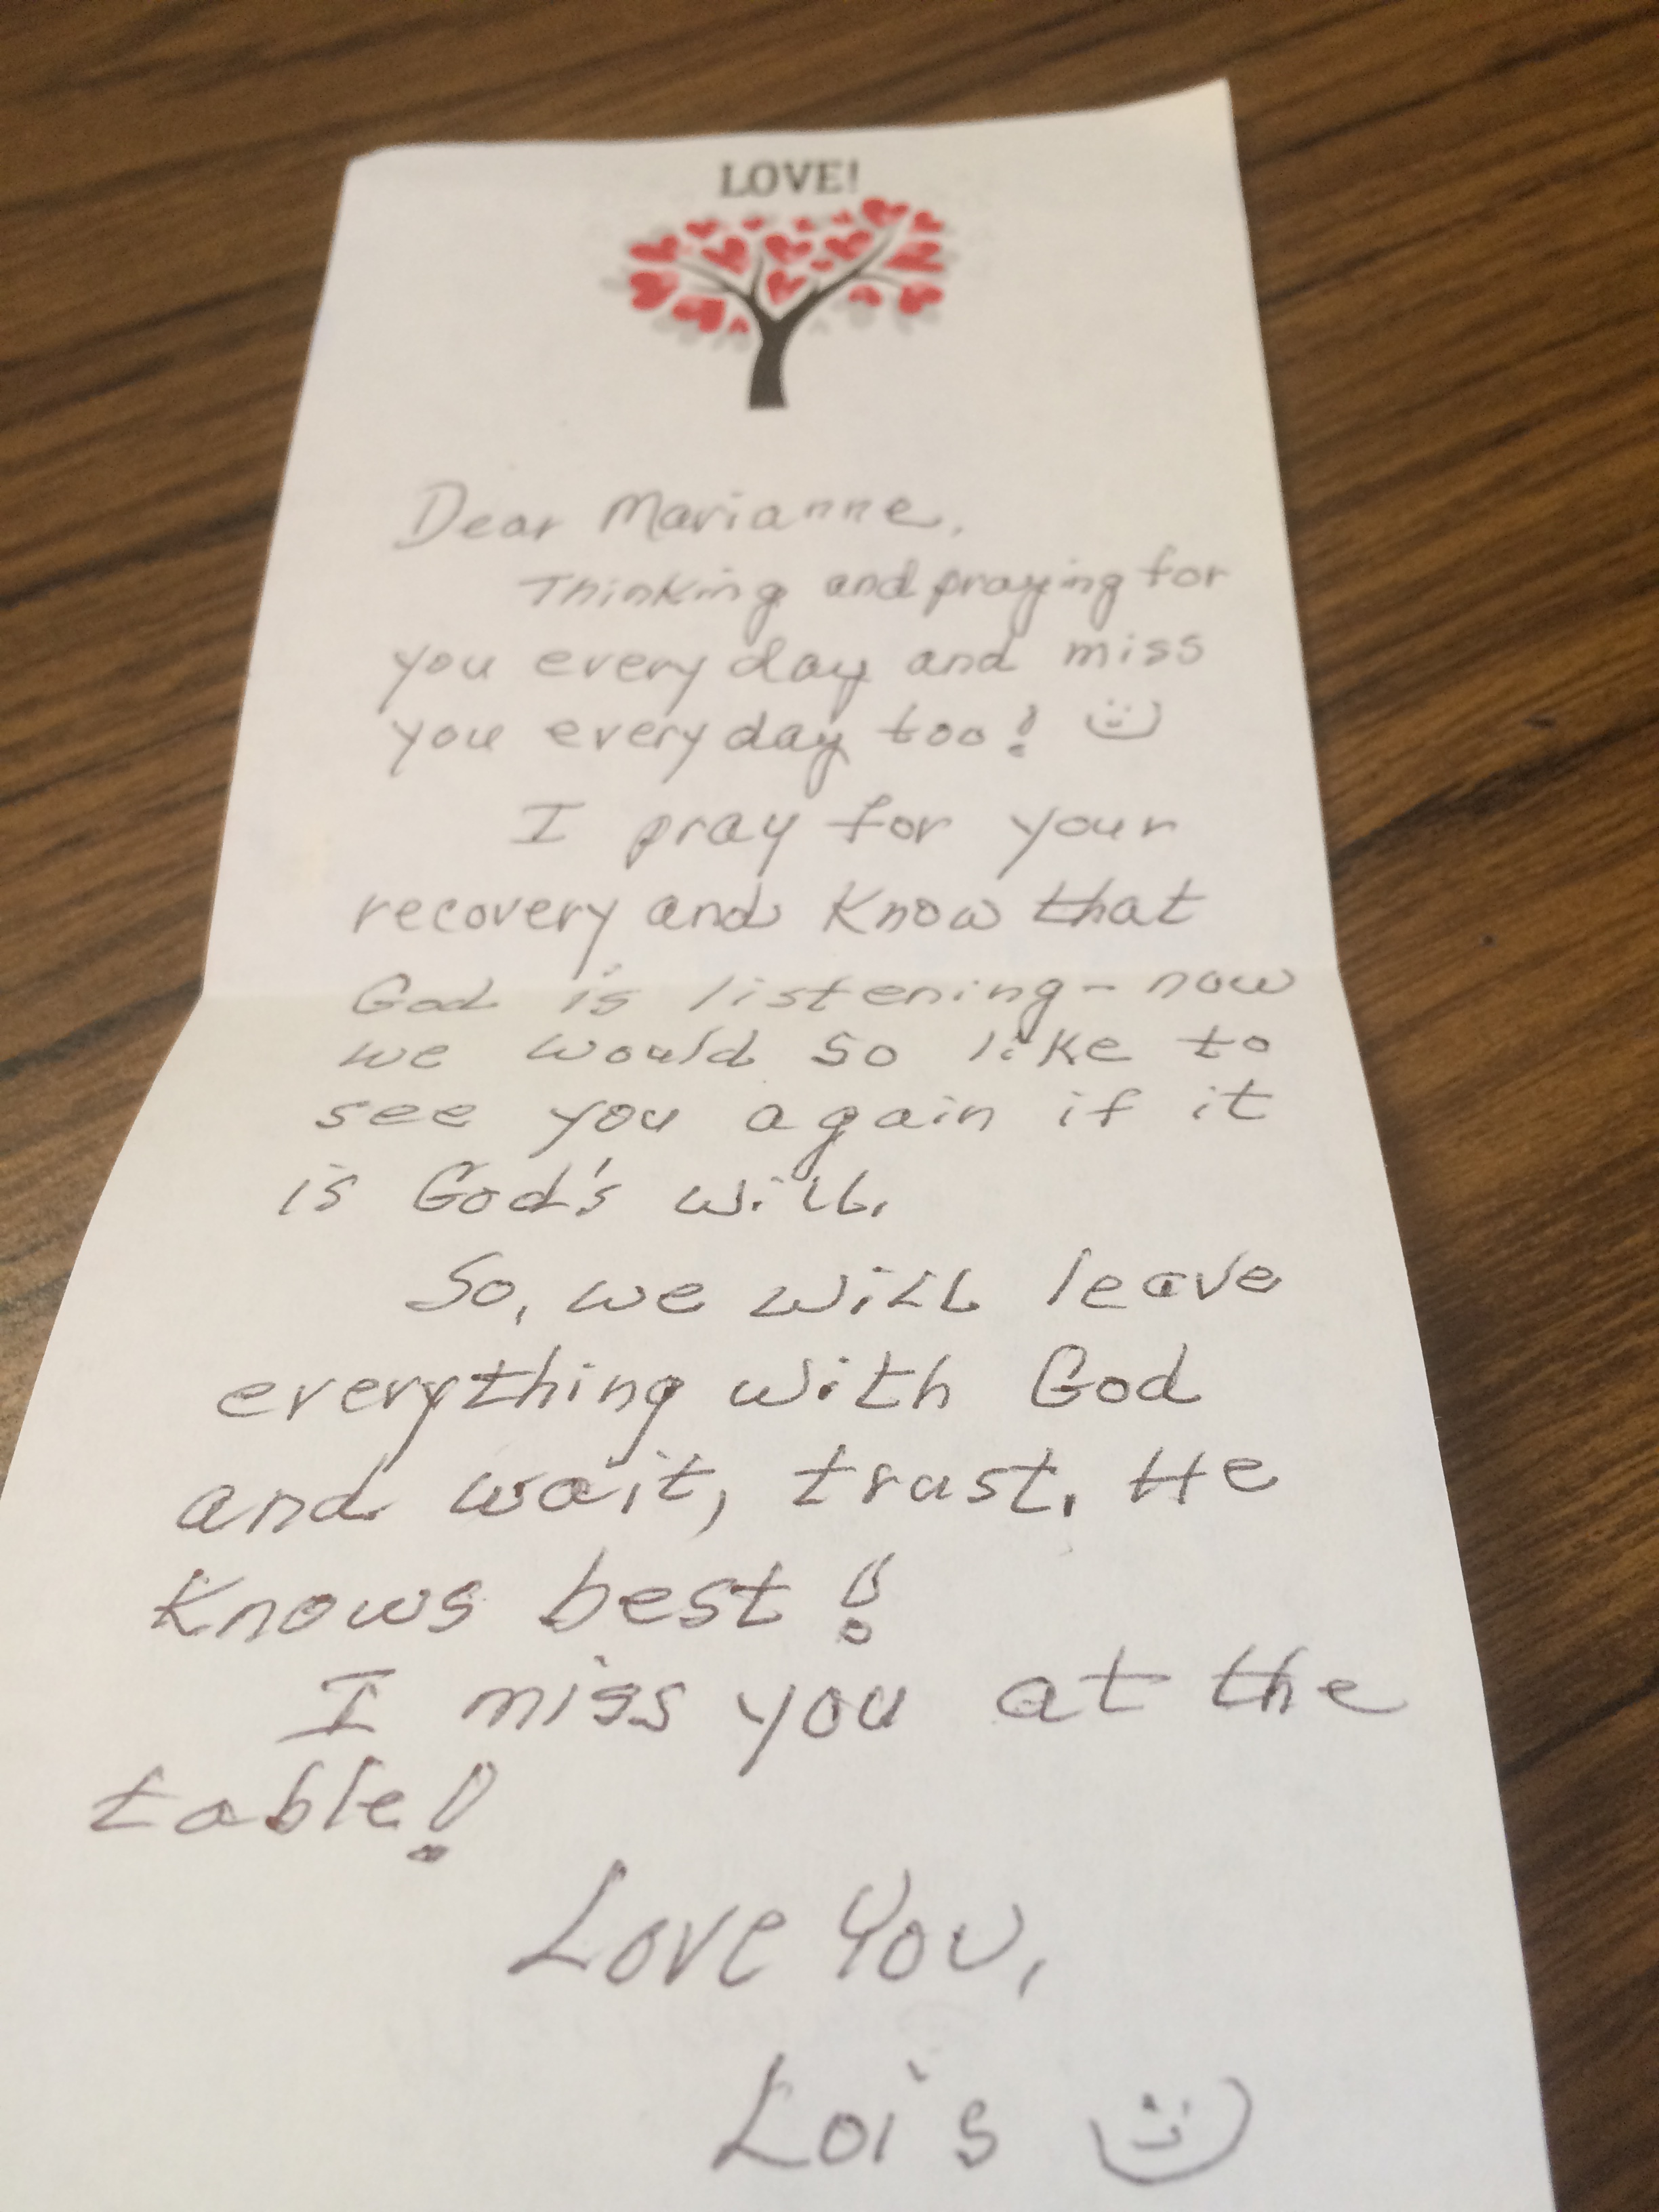 LOVE!
Dear Marianne,
Thinking and praying for
you every day and miss
you every day too! 
I pray for your
recovery and know that
God is listening - now
we would so like to
see you again if it
is God's will.
So, we will leave
everything with God
and wait, trust. He
knows best!
I miss you at the
table!
Love You,
Lois